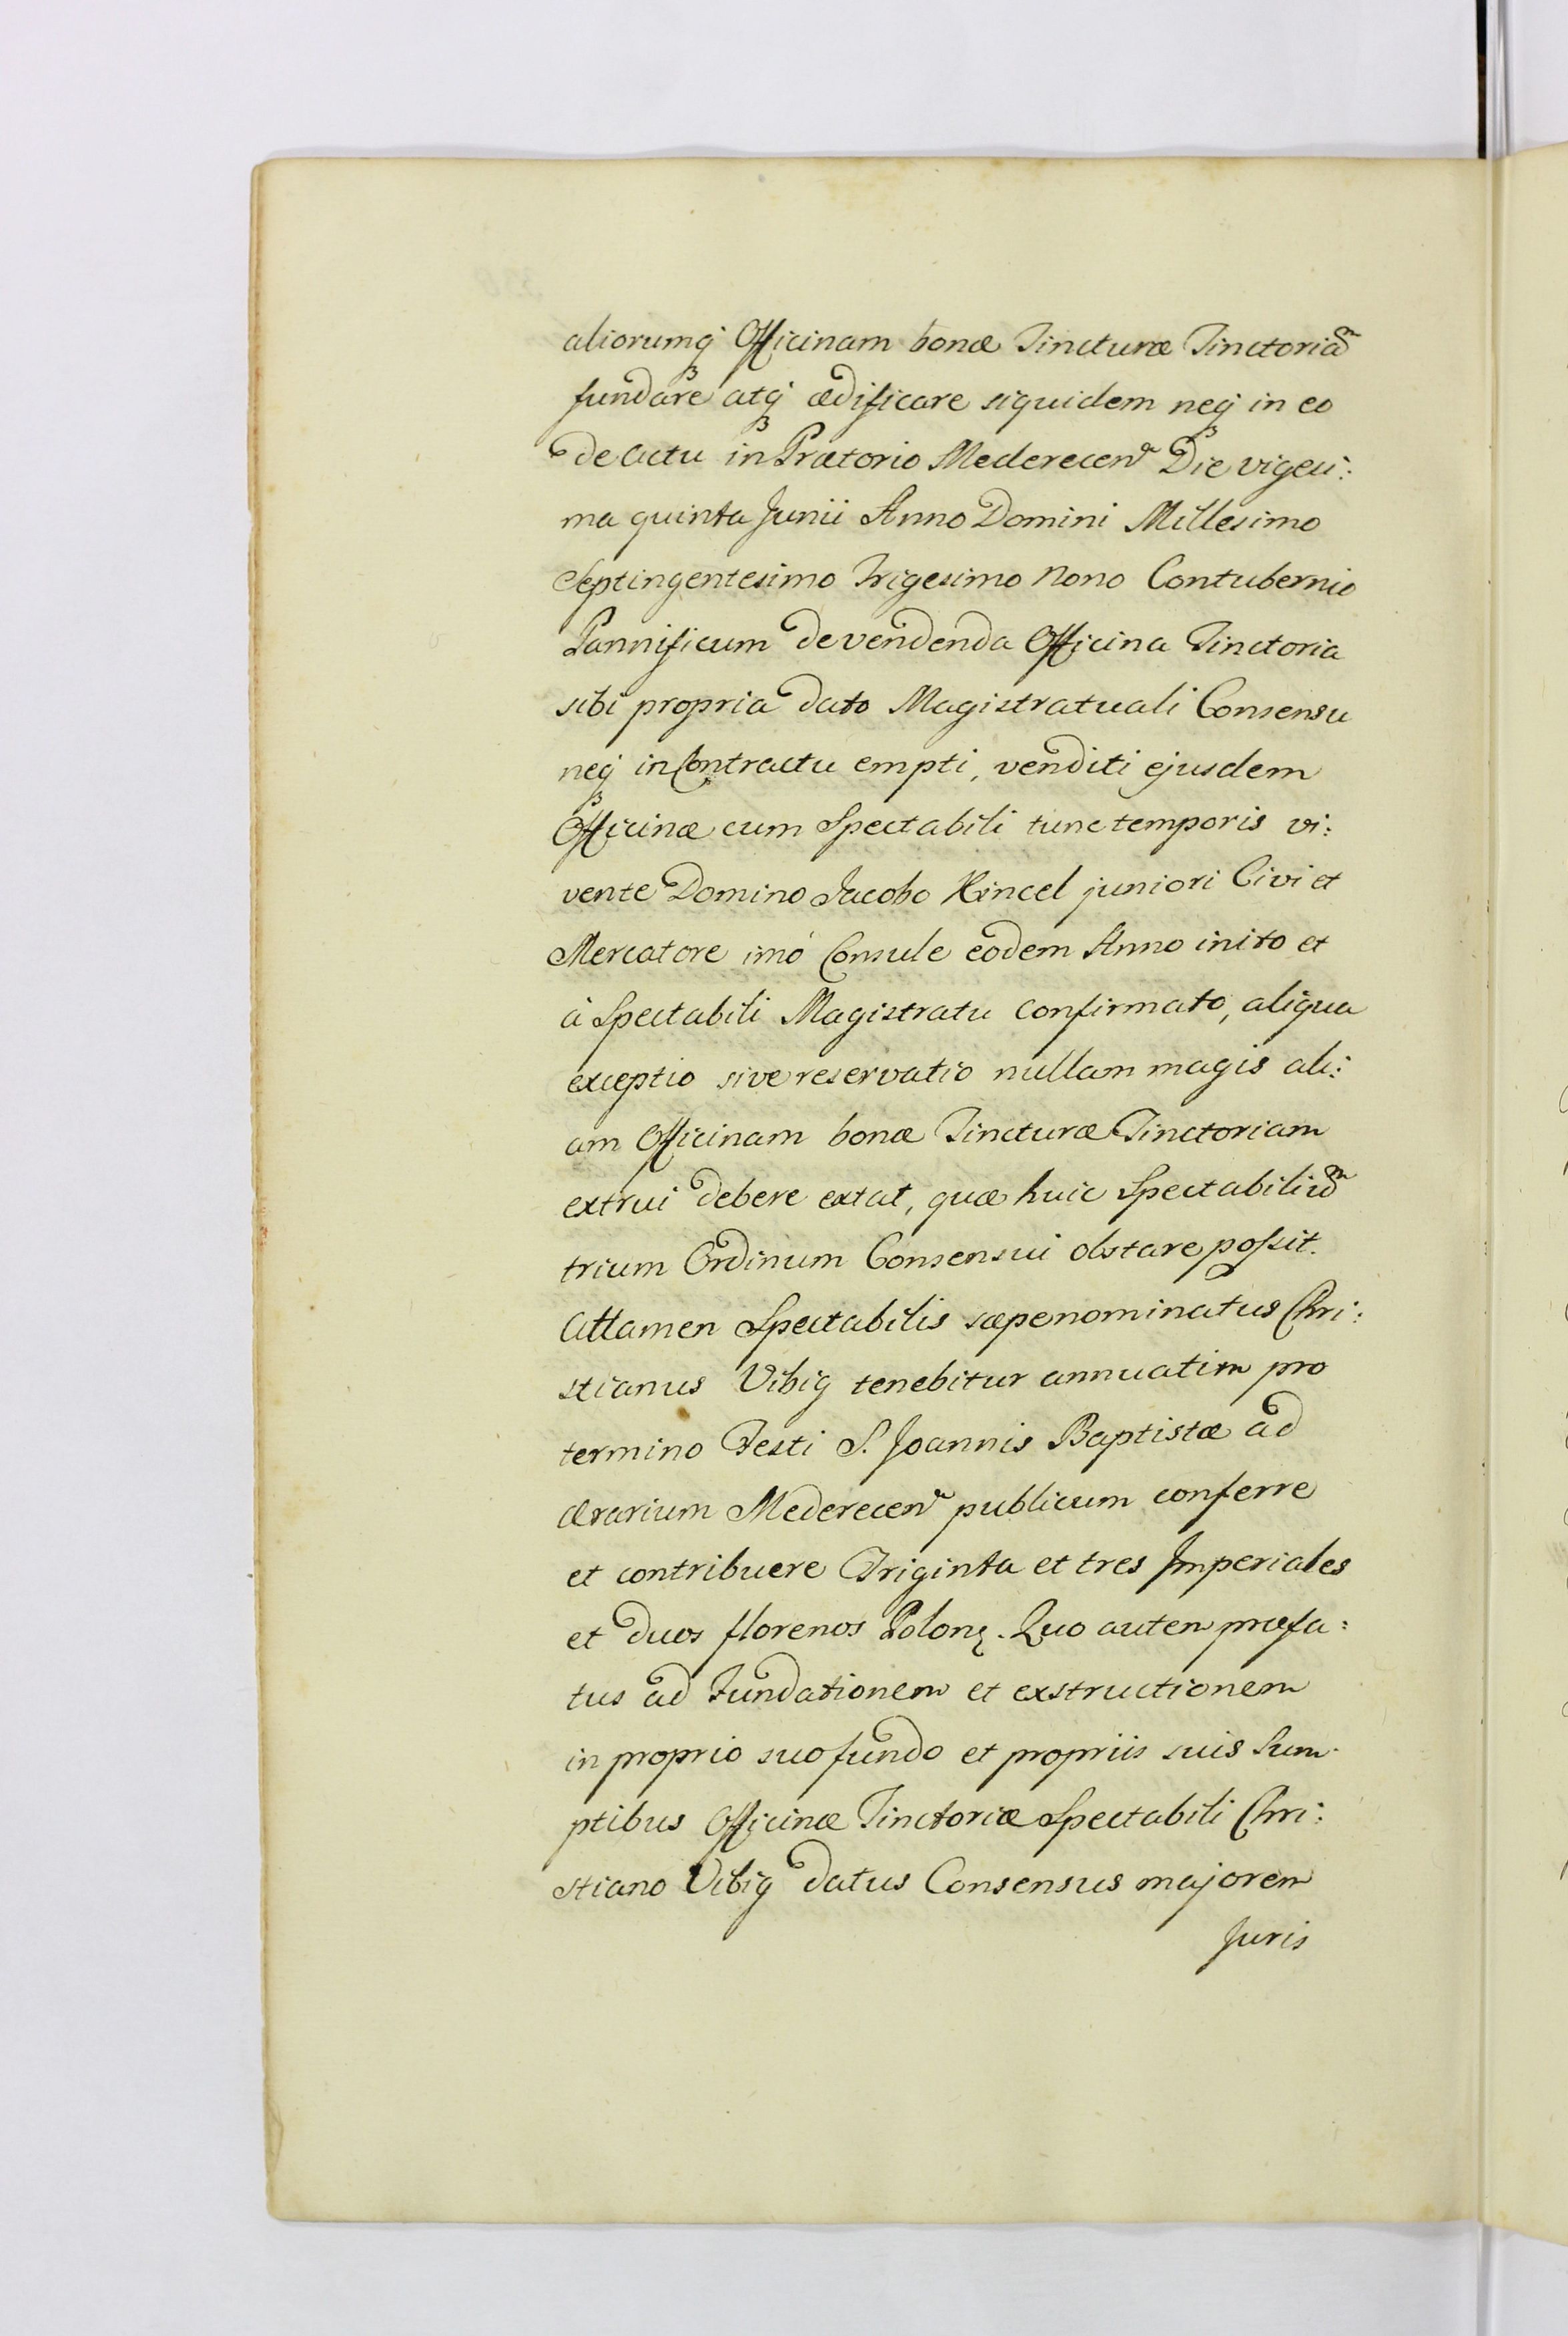 aliorumq̃ Officinam bonæ Tincturæ Tinctoriam̃
fundare atq̃ ædificare siquidem neq̃ in eo
de actu in Prætorio Mederecen̄ Die vigesi:
ma quinta Junii Anno Domini Millesimo
Septingentesimo Trigesimo Nono Contubernio
Pannificum de vendenda Officina Tinctoria
sibi propria dato Magistratuali Consensu
neq̃ in Contractu empti, venditi ejusdem
Officinæ cum Spectabili tunc temporis vi:
vente Domino Jacobo Hincel juniori Civi et
Mercatore imó Consule eodem Anno inito et
à Spectabili Magistratu confirmato, aliqua
exceptio sive reservatio nullam magis ali:
am Officinam bonæ Tincturæ Tinctoriam
extrui debere extat, quæ huic Spectabiliũ
trium Ordinum Consensui obstare possit.
Attamen Spectabilis sæpenominatus Chri:
stianus Vibig tenebitur annuatim pro
termino Festi S. Joannis Baptistæ ad
Ærarium Mederecen̄ publicum conferre
et contribuere Triginta et tres Imperiales
et duos florenos Polon. Quo autem præfa:
tus ad Fundationem et exstructionem
in proprio suo fundo et propriis suis Sum-
ptibus Officinæ Tinctoriæ Spectabili Chri:
stiano Vibig datus Consensus majorem
Juris